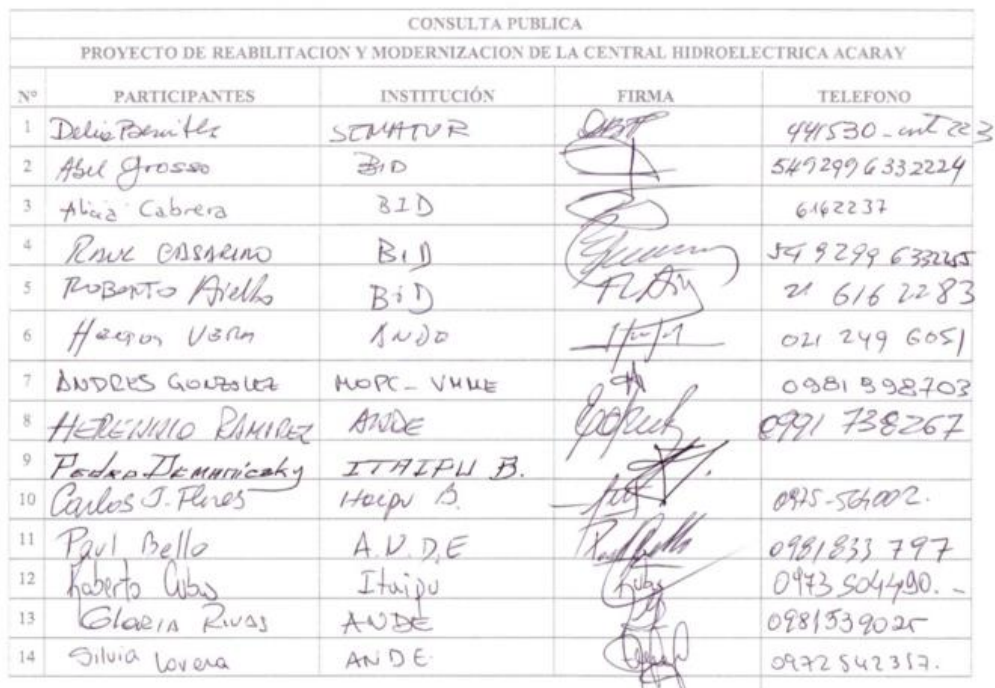 CONSULTA PUBLICA
PROYECTO DE REABILITACION Y MODERNIZACION DE LA CENTRAL HIDROELECTRICA ACARAY
Nº PARTICIPANTES INSTITUCIÓN FIRMA TELEFONO
1 Delia Benitez 441530-int 223
2 Abel Grosso BID 5492996332224
3 Alicia Cabrera BID 6162237
4 RAUL CASARINO BID 549 299 6332255
5 ROBERTO Aiello BiD 21 616 2283
6 VERA 021 249 6051
7 ANDRES GONZALEZ MOPC-VMME 0981 998703
8 HERENNIO RAMIREZ ANDE 0991 738267
9 PEDRO ITAIPU B.
10 Carlos J. Flores Itaipu B. 0975-564002.
11 Paul Bello A.N.D.E 0981833 797
12 Roberto Cubas Itaipu Cubas 0973 504490.-
13 GLORIA RIVAS ANDE 0981539025
14 Silvia Lovera ANDE 0972542357.